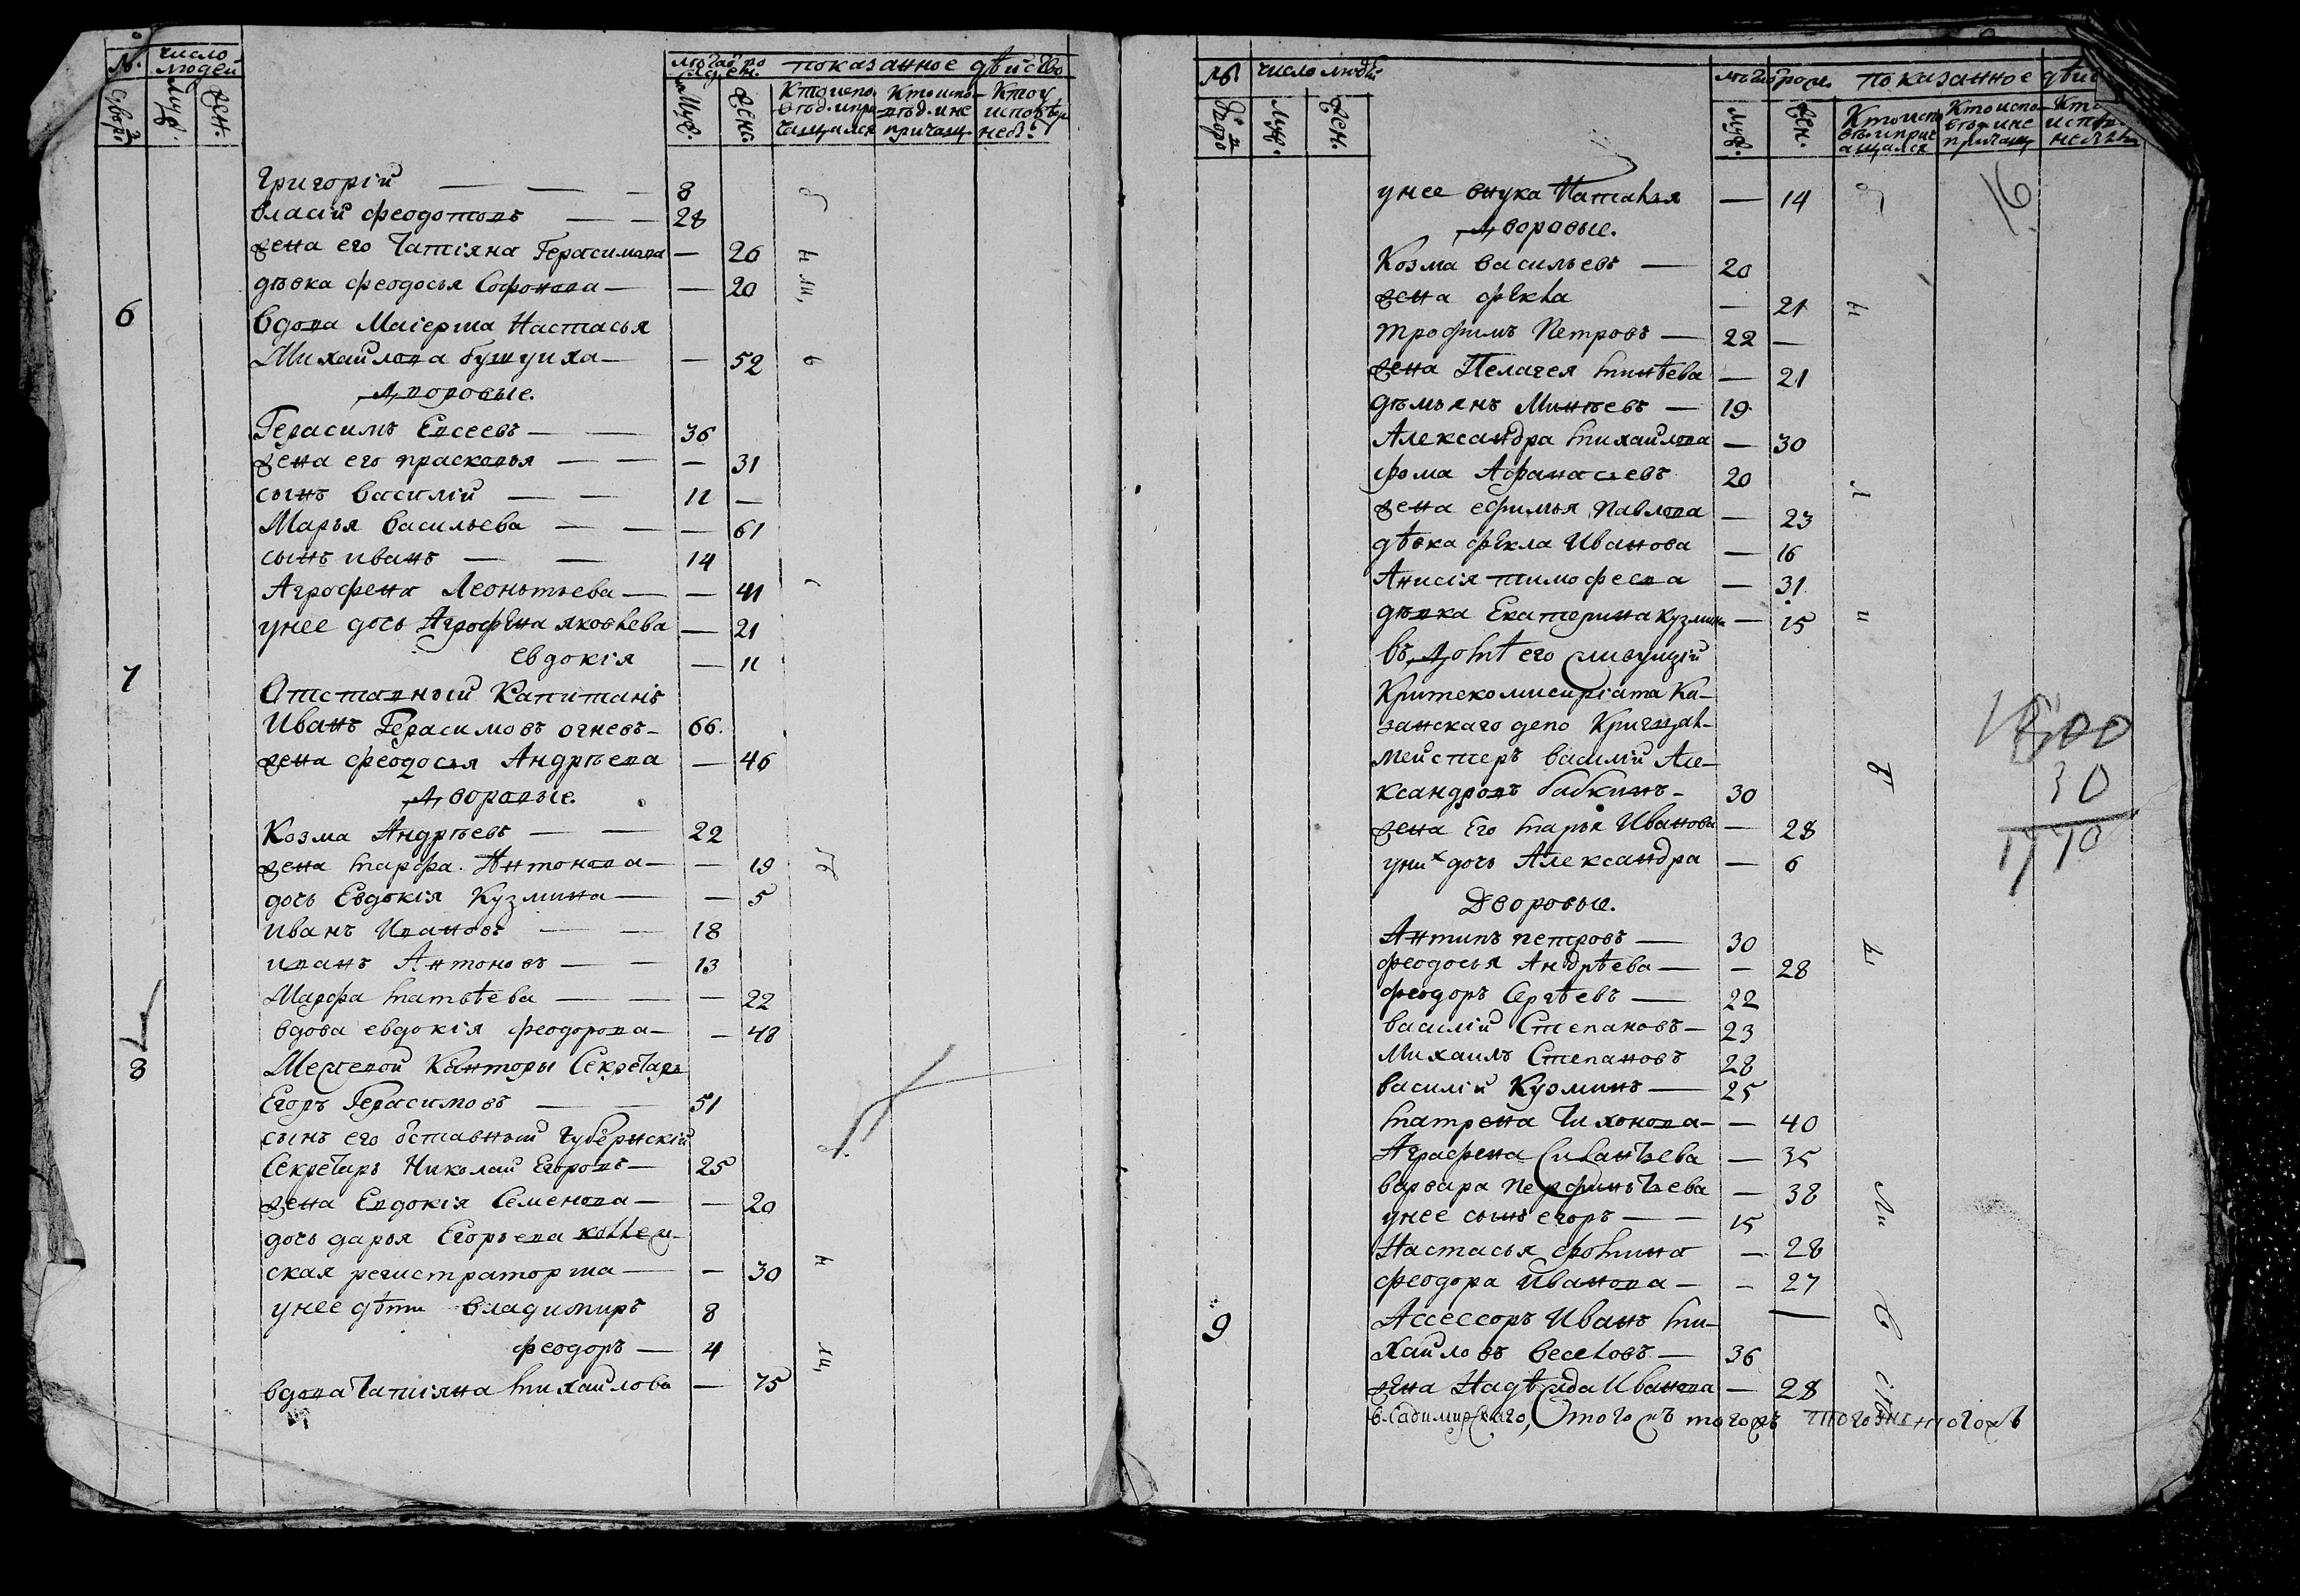 №. число людей
лѣта отъ рожден. показанное дѣйство
двора Муж. жен.
Муж. жен. Кто испо вѣд. и при чащался Кто испо вѣд. и не причащ. Кто у исповѣди не б.
Григорій — — — 8
власій феодотовъ — — 28
жена его Татіяна Герасимова — 26
дѣвка феодосья Софонова — — 20
6
вдова Маіерша Настасья
Михайлова — — 52
Дворовые.
Герасимъ Евсеевъ — — 36
жена его прасковья — — — 31
сынъ василій — — 11 —
Марья васильева — — — 61
сынъ иванъ — — 14
Агрофена Леонтьева — — 41
унее дочь Агрофена яковлева — 21
евдокія — 11
7
Отставный Капитанъ
Иванъ Герасимовъ огневъ — 66.
жена феодосья Андрѣева — 46
Дворовые.
Козма Андрѣевъ — — 22
жена марфа Антонова — — 19
дочь Евдокія Кузмина — — 5
иванъ Ивановъ — — 18
иванъ Антоновъ — — 13
Марфа матвѣева — — — 22
вдова евдокія феодорова — — 48
8
Межевой Канторы Секретарь
Егоръ Герасимовъ — — 51
сынъ его отставный Губернскій
Секретарь Николай Егоровъ — 25
жена Евдокія Семенова — — 20
дочь дарья Егорьева коллеж-
ская регистраторша — — 30
унее дѣти владимиръ 8
феодоръ — 4
вдова Татіяна михайлова — 75
№ число людей
лѣта отъ рожд. показанное дѣйст
дворо муж. жен.
муж. жен. Кто испо вѣ. и прич ащался Кто испо вѣд. и не причащ Кто испов. не былъ
унее внука Наталья — 14
16.
Дворовые.
Козма васильевъ — 20
жена фекла — 21
трофимъ Петровъ — 22 —
жена Пелагея минѣева — 21
дѣмьянъ Минѣевъ — 19
Александра михайлова — 30
фома Афанасьевъ 20
жена ефимья Павлова — 23
дѣвка фекла Иванова — 16
Анисія тимофеева — 31.
дѣвка Екатерина кузмина — 15
въ Домѣ его живущій
Кригскомисиріата Ка-
занскаго депо Кригцал-
мейстеръ василій Але-
ксандровъ бабкинъ — 30
1800
30
1770
жена его марья Иванова — 28
у них дочь Александра — 6
Дворовые.
Антипъ петровъ — 30
феодосья Андрѣева — — 28
феодоръ Сергѣевъ — 22
василій Степановъ — 23
Михаилъ Степановъ 28
василій Кузминъ — 25
матрена Тихонова — — 40
Аграфена — 35
варвара — 38
унее сынъ егоръ — — 15
Настасья фомина — 28
феодора Иванова — — 27
9
Ассессоръ Иванъ ми- —
хайловъ веселовъ — 36
жена Надѣжда Иванова — 28
владимирскаго,